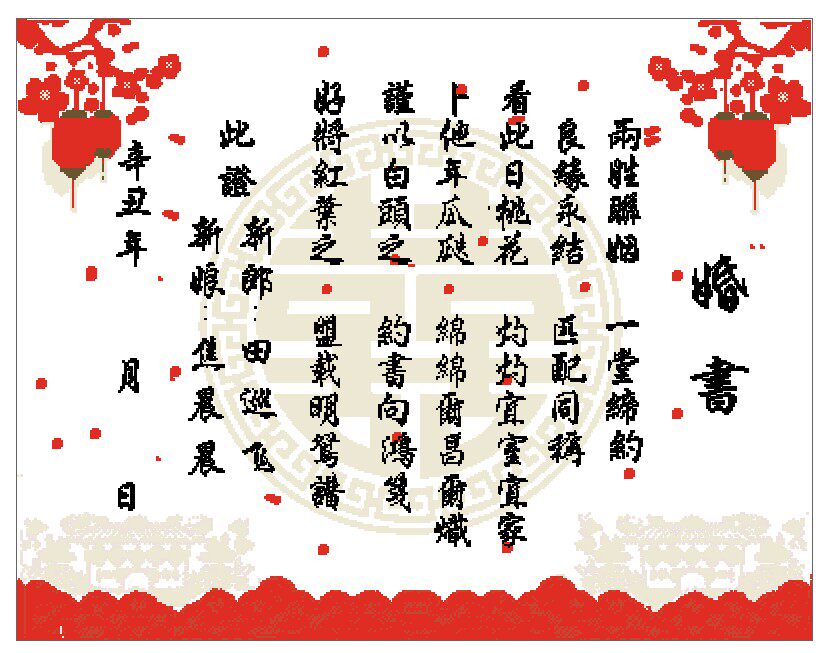 婚書
兩姓聯姻 一堂締約
良緣永結 匹配同稱
看此日桃花 灼灼宜室宜家
卜他年瓜瓞 綿綿爾昌爾熾
謹以白頭之 約書向鴻箋
好將紅葉之 盟載明鴛譜
此證
新郎：田巡飞
新娘：焦晨晨
辛丑年 月 日